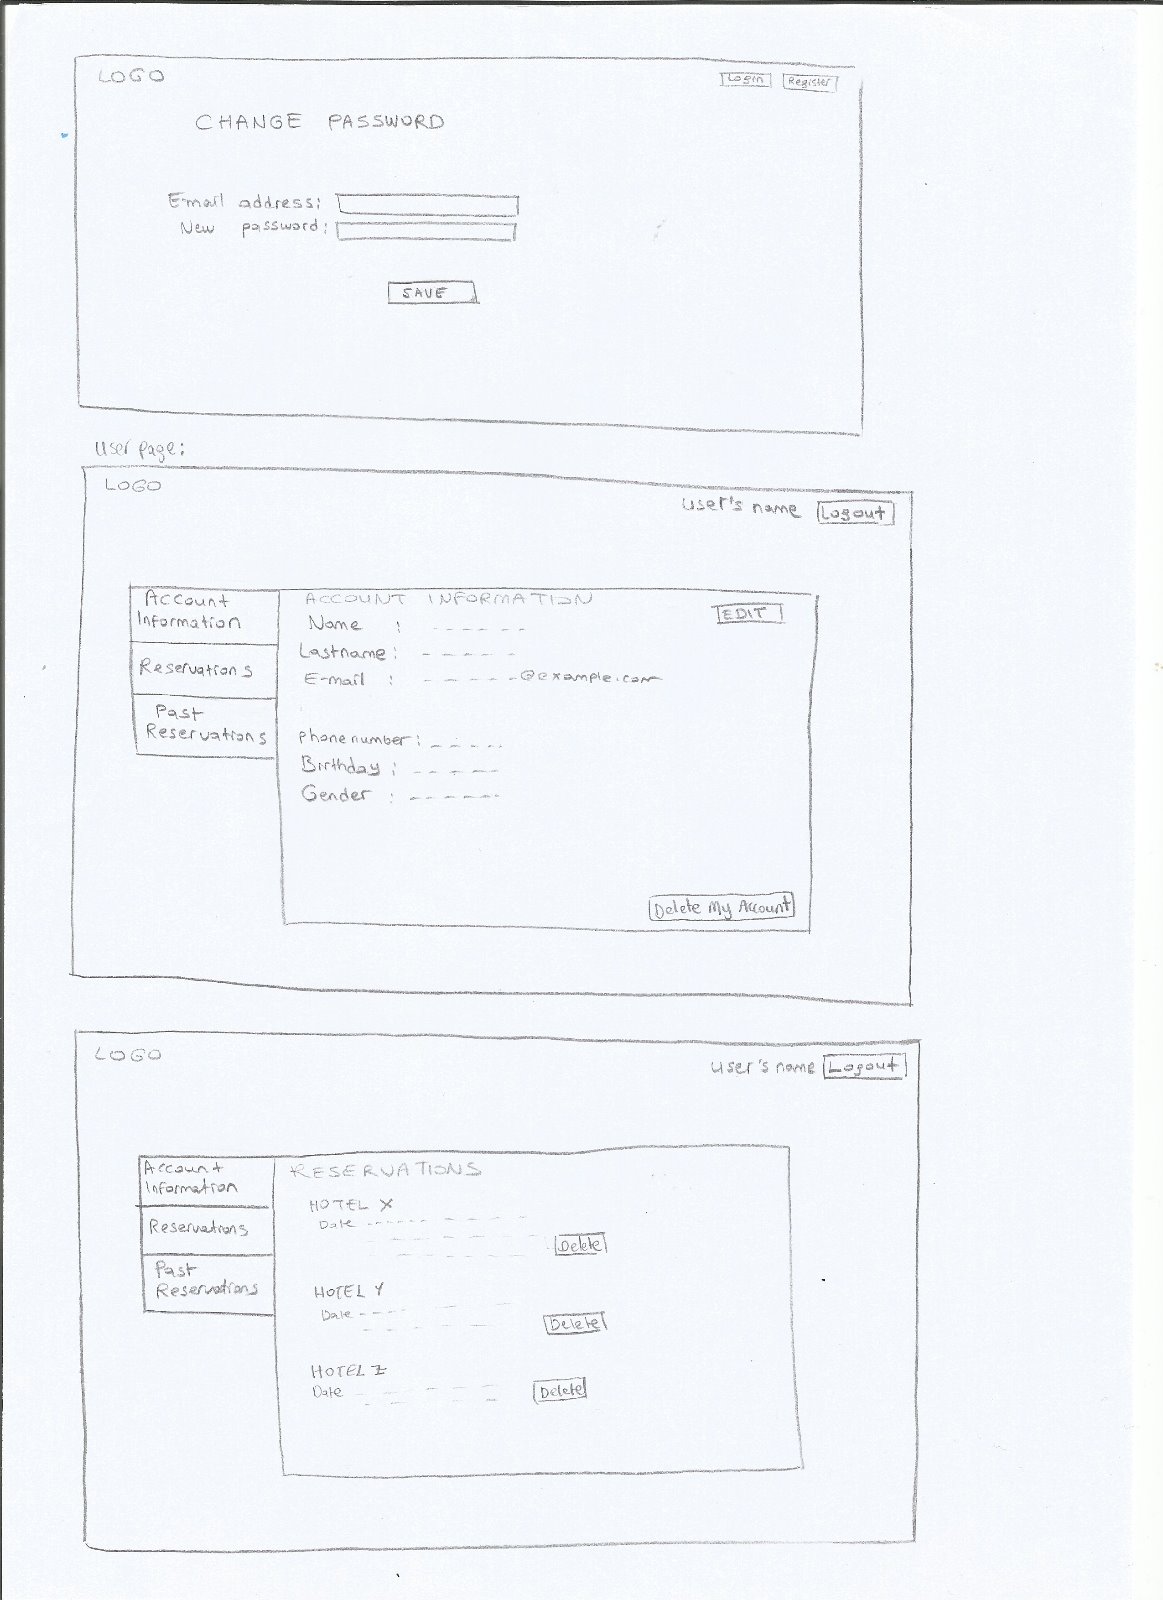 LOGO
Login Register
CHANGE PASSWORD
E-mail address:
New password:
SAVE
User page:
LOGO
user's name Logout
Account
Information
Reservations
Past
Reservations
ACCOUNT INFORMATION
EDIT
Name :
Lastname :
E-mail : @example.com
phone number :
Birthday :
Gender :
Delete My Account
LOGO
user's name Logout
Account
Information
Reservations
Past
Reservations
RESERVATIONS
HOTEL X
Date
Delete
HOTEL Y
Date
Delete
HOTEL Z
Date
Delete